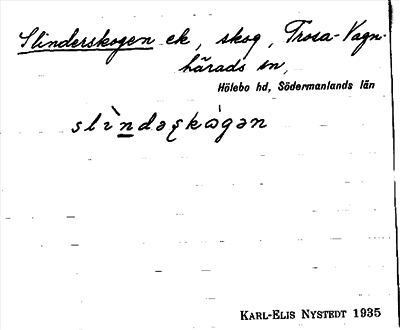 Slinderskogen ek, skog, Trosa-Vagn-
härads sn,
Hölebo hd, Södermanlands län
slìndəʂkògən
KARL-ELIS NYSTEDT 1935